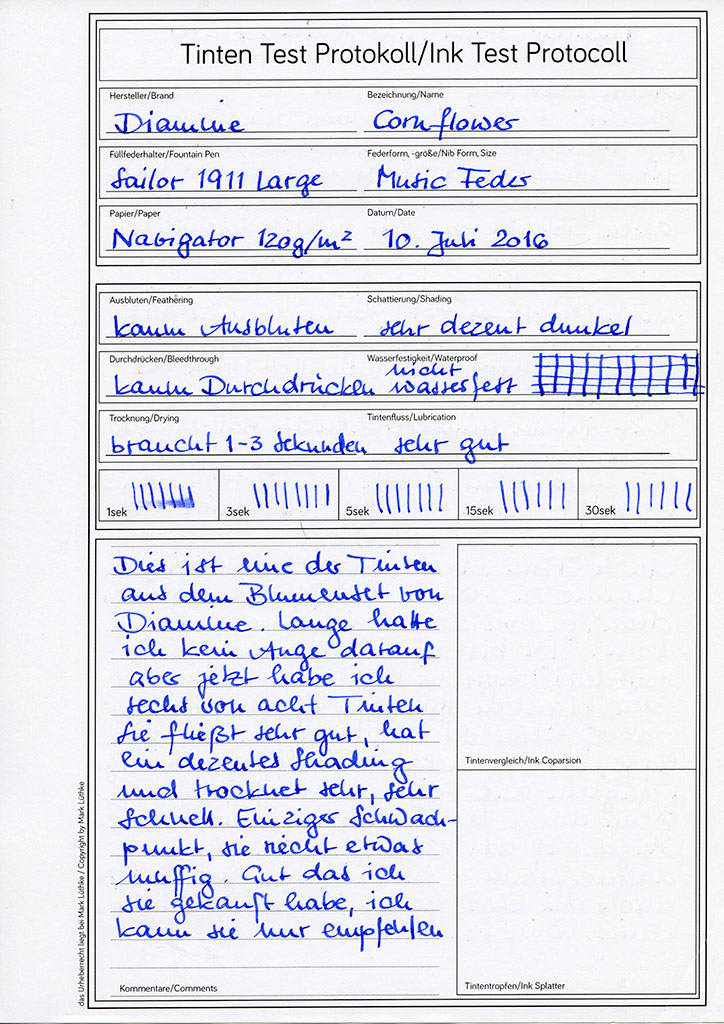 Tinten Test Protokoll/Ink Test Protocoll
Hersteller/Brand
Diamine
Bezeichnung/Name
Cornflower
Füllfederhalter/Fountain Pen
Sailor 1911 Large
Federform, -größe/Nib Form, Size
Music Feder
Papier/Paper
Navigator 120g/m²
Datum/Date
10. Juli 2016
Ausbluten/Feathering
kaum Ausbluten
Schattierung/Shading
sehr dezent dunkel
Durchdrücken/Bleedthrough
kaum Durchdrücken
Wasserfestigkeit/Waterproof
nicht
wasserfest
Trocknung/Drying
braucht 1-3 Sekunden
Tintenfluss/Lubrication
sehr gut
1sek
3sek
5sek
15sek
30sek
Dies ist eine der Tinten
aus dem Blumenset von
Diamine. Lange hatte
ich kein Auge darauf
aber jetzt habe ich
sechs von acht Tinten
Sie fließt sehr gut, hat
ein dezentes Shading
und trocknet sehr, sehr
schnell. Einziger Schwach-
punkt, sie riecht etwas
muffig. Gut das ich
sie gekauft habe, ich
kann sie nur empfehlen
Kommentare/Comments
Tintenvergleich/Ink Coparsion
Tintentropfen/Ink Splatter
das Urheberrecht liegt bei Mark Lüthke / Copyright by Mark Lüthke